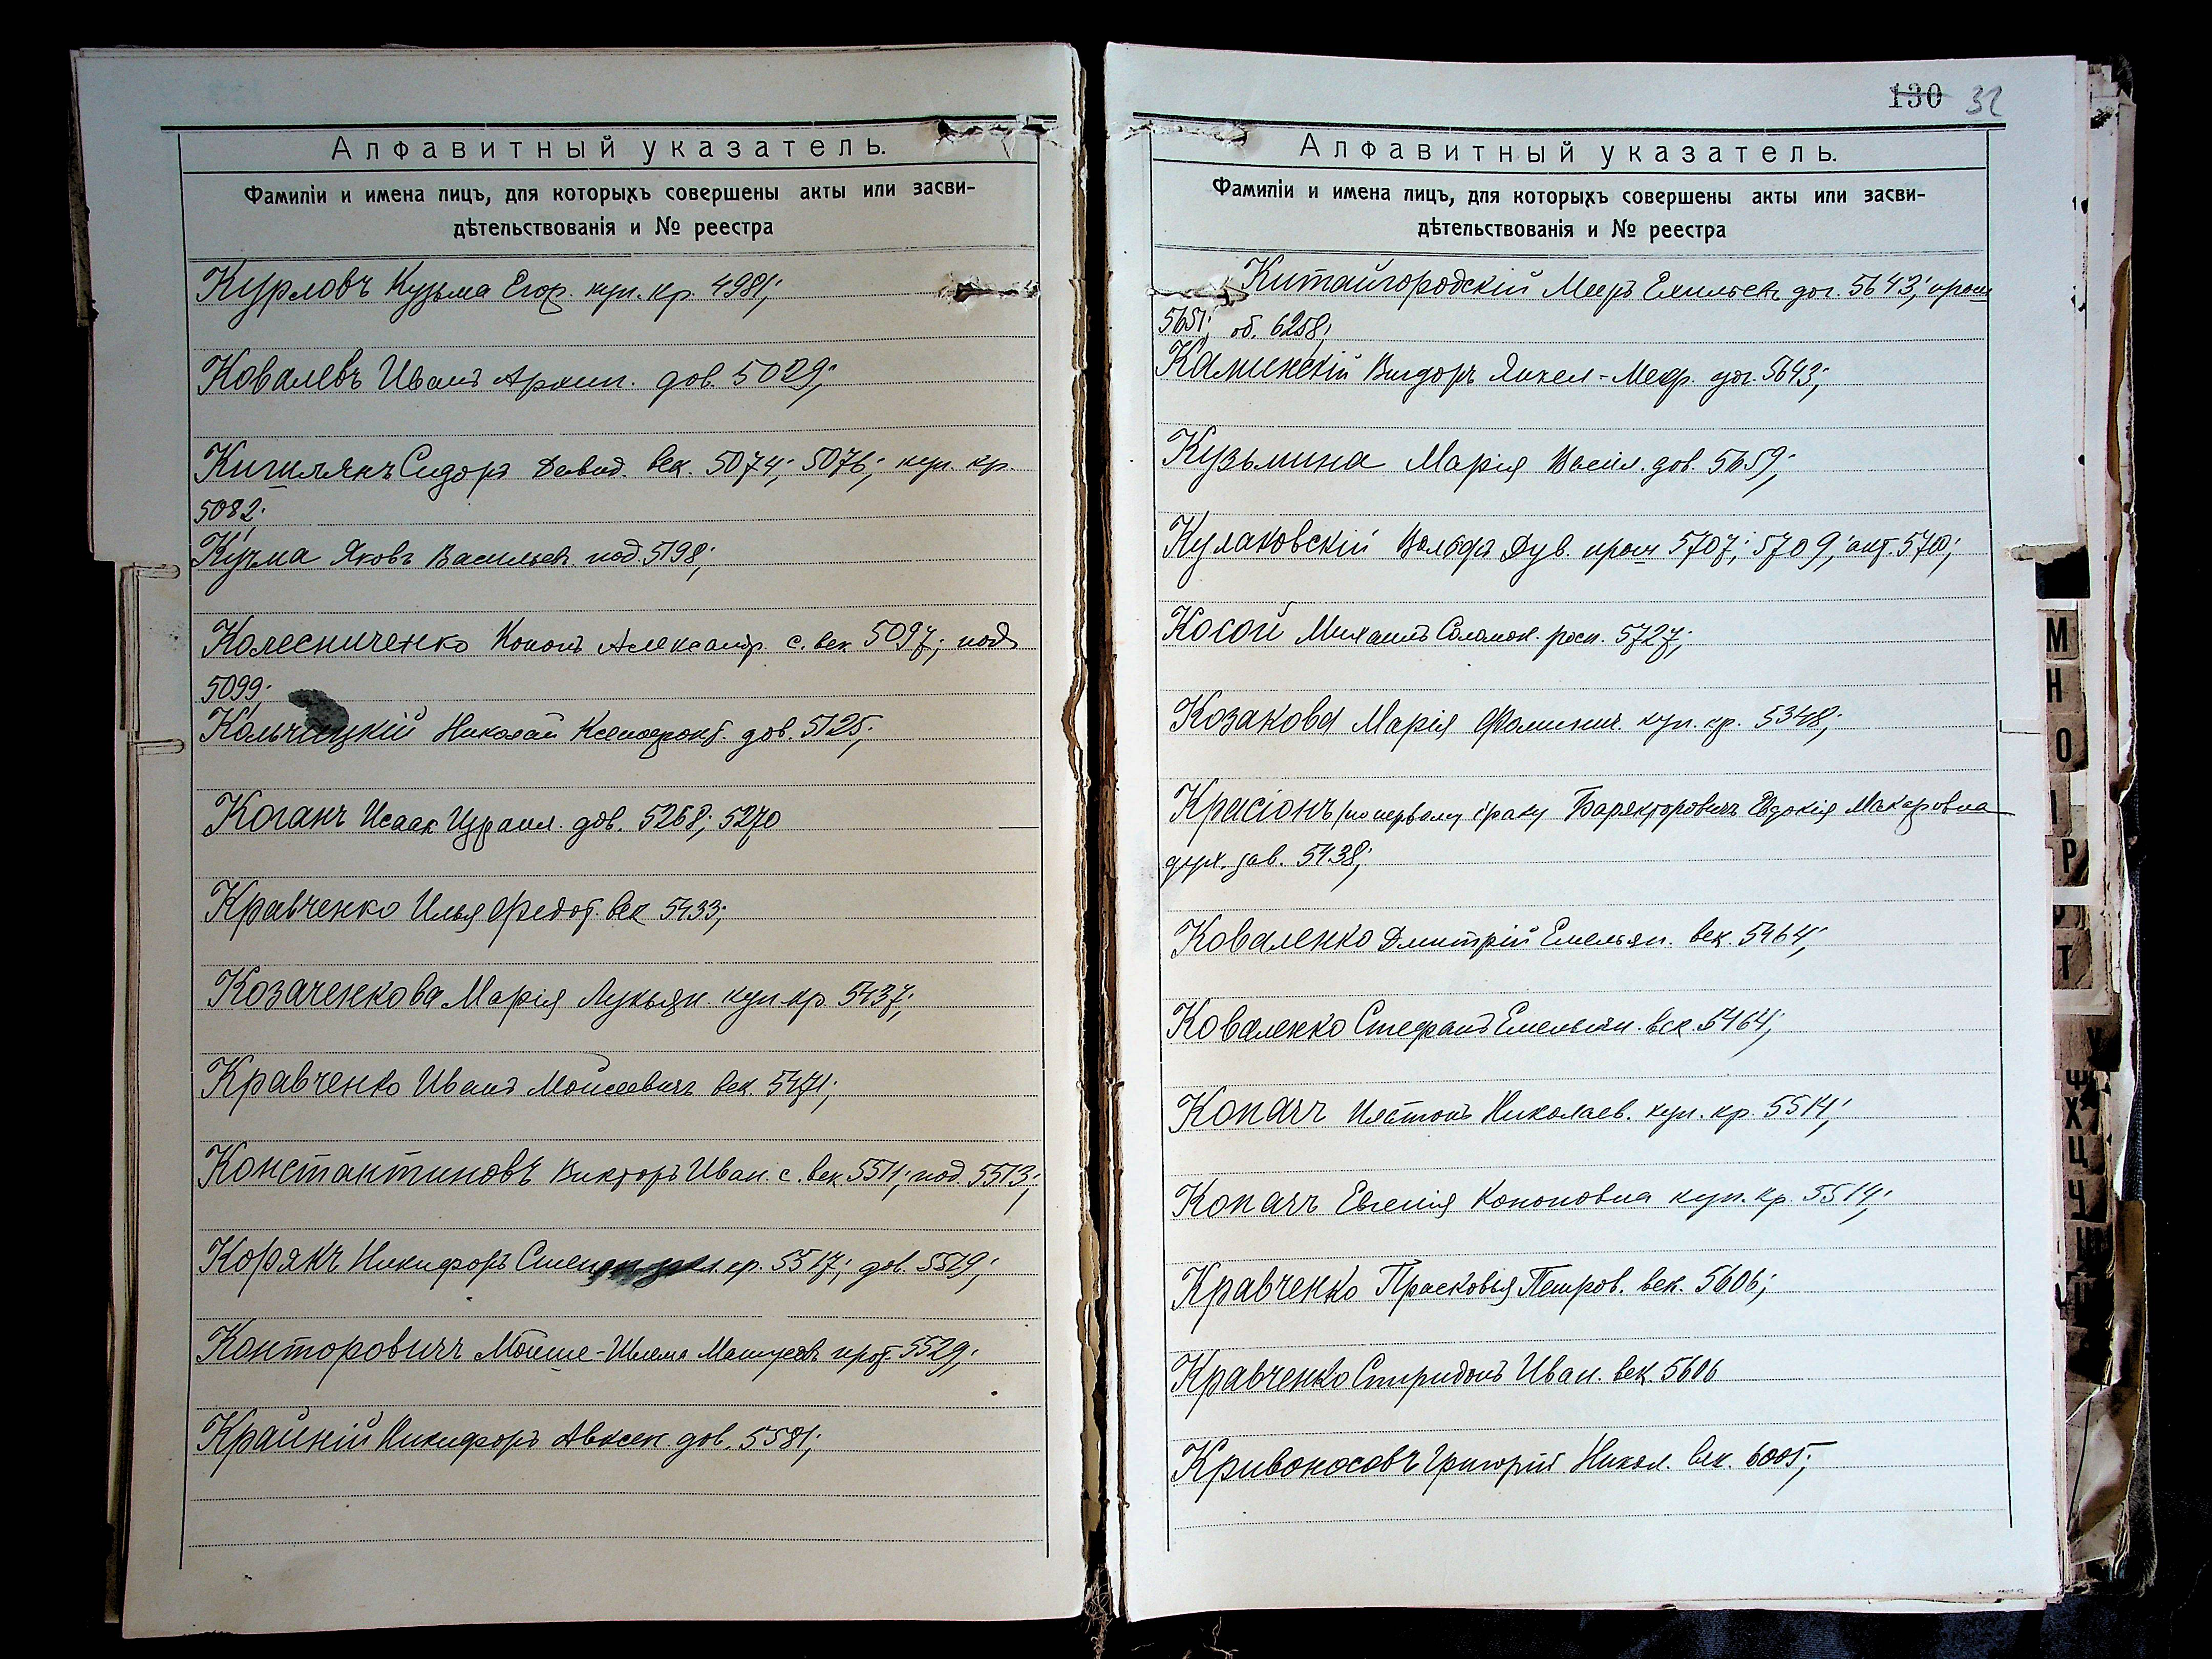 Алфавитный указатель.
Фамиліи и имена лицъ, для которыхъ совершены акты или засви-
дѣтельствованія и № реестра
Курловъ Кузьма Егор. куп. кр. 4981;
Ковалевъ Иванъ Архип. дов. 5029;
Сидоръ Давид. век. 5074; 5076; куп. кр.
5082;
Кучма Яковъ Васильев. под. 5198;
Колесниченко Кононъ Александр. с. век. 5097; под.
5099;
Кольчицкій Николай Ксенофонт. дов. 5125;
Коганъ Исаак Израил. дов. 5268; 5270
Кравченко Илья Федот. век. 5433;
Козаченкова Марія Лукьян. куп. кр. 5437;
Кравченко Иванъ Моисеевичъ век. 5471;
Константиновъ Викторъ Иван. с. век. 5511; под. 5513;
Корякъ Никифоръ кр. 5517; дов. 5519;
Конторовичъ Мойше-Шлема Матусов. прот. 5529;
Крайній Никифоръ Авксен. дов. 5581;
130 32
Алфавитный указатель.
Фамиліи и имена лицъ, для которыхъ совершены акты или засви-
дѣтельствованія и № реестра
Китайгородскій Меръ дог. 5643;
5651; об. 6258;
Каминскій Вигдоръ Янкел-Меер. дог. 5643;
Кузьмина Марія Васил. дов. 5659;
Кулаковскій Вольфъ Дув. 5707; 5709; акт. 5710;
Косой Михаилъ Соломон. росп. 5727;
Козакова Марія Фоминич. куп. кр. 5348;
Красіонъ /по первому браку Баряктаровичъ Евдокія Макаровна
дух. зав. 5438;
Коваленко Дмитрій Емельян. век. 5464;
Коваленко Стефанъ Емельян. век. 5464;
Копачъ Николаев. куп. кр. 5514;
Копачъ Евгенія Кононовна куп. кр. 5514;
Кравченко Прасковья Петров. век. 5606;
Кравченко Спиридонъ Иван. век. 5606
Кривоносовъ Григорій Никол. век. 6005;
М
Н
О
І
Р
Т
У
Ф
Х
Ц
Ч
Ш